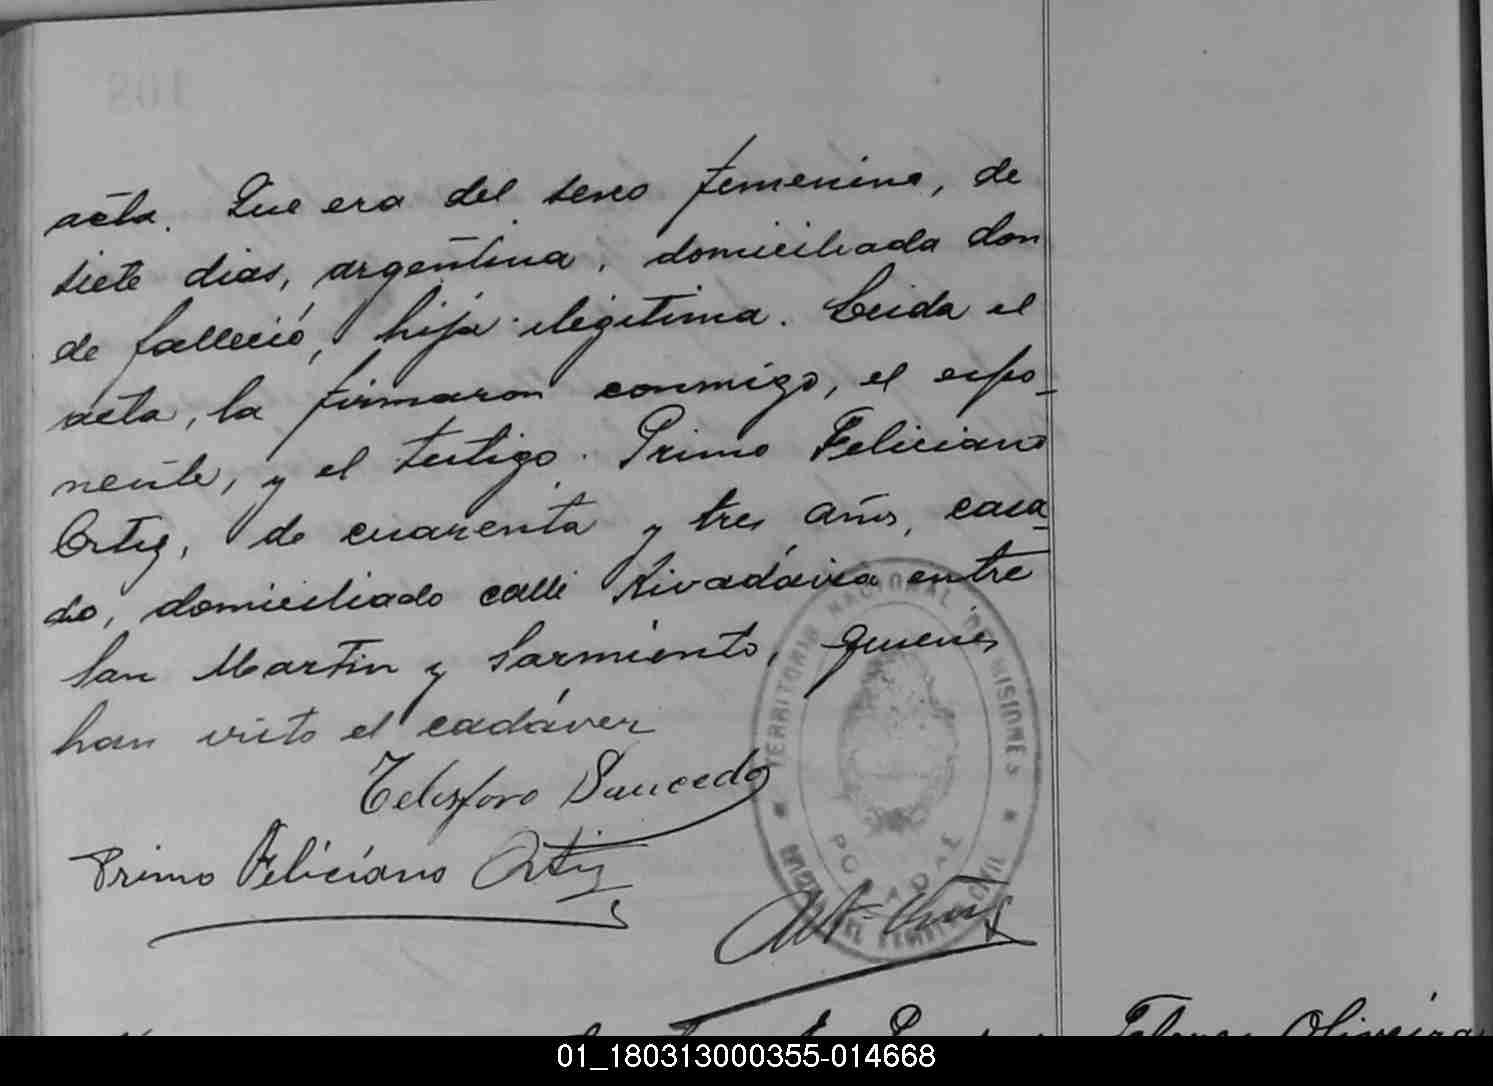 acta. Que era del sexo femenino, de
siete dias, argentina, domiciliada don
de falleció, hija ilegitima. Leida el
acta, la firmaron conmigo, el expo-
nente, y el testigo. Primo Feliciano
Ortiz, de cuarenta y tres años, casa-
do, domiciliado calle Rivadávia entre
San Martin y Sarmiento, quienes
han visto el cadáver
Telesforo Saucedo
Primo Feliciano Ortiz
TERRITORIO NACIONAL DE MISIONES
POSADAS
CIVIL
Oliveira
108
01_180313000355-014668